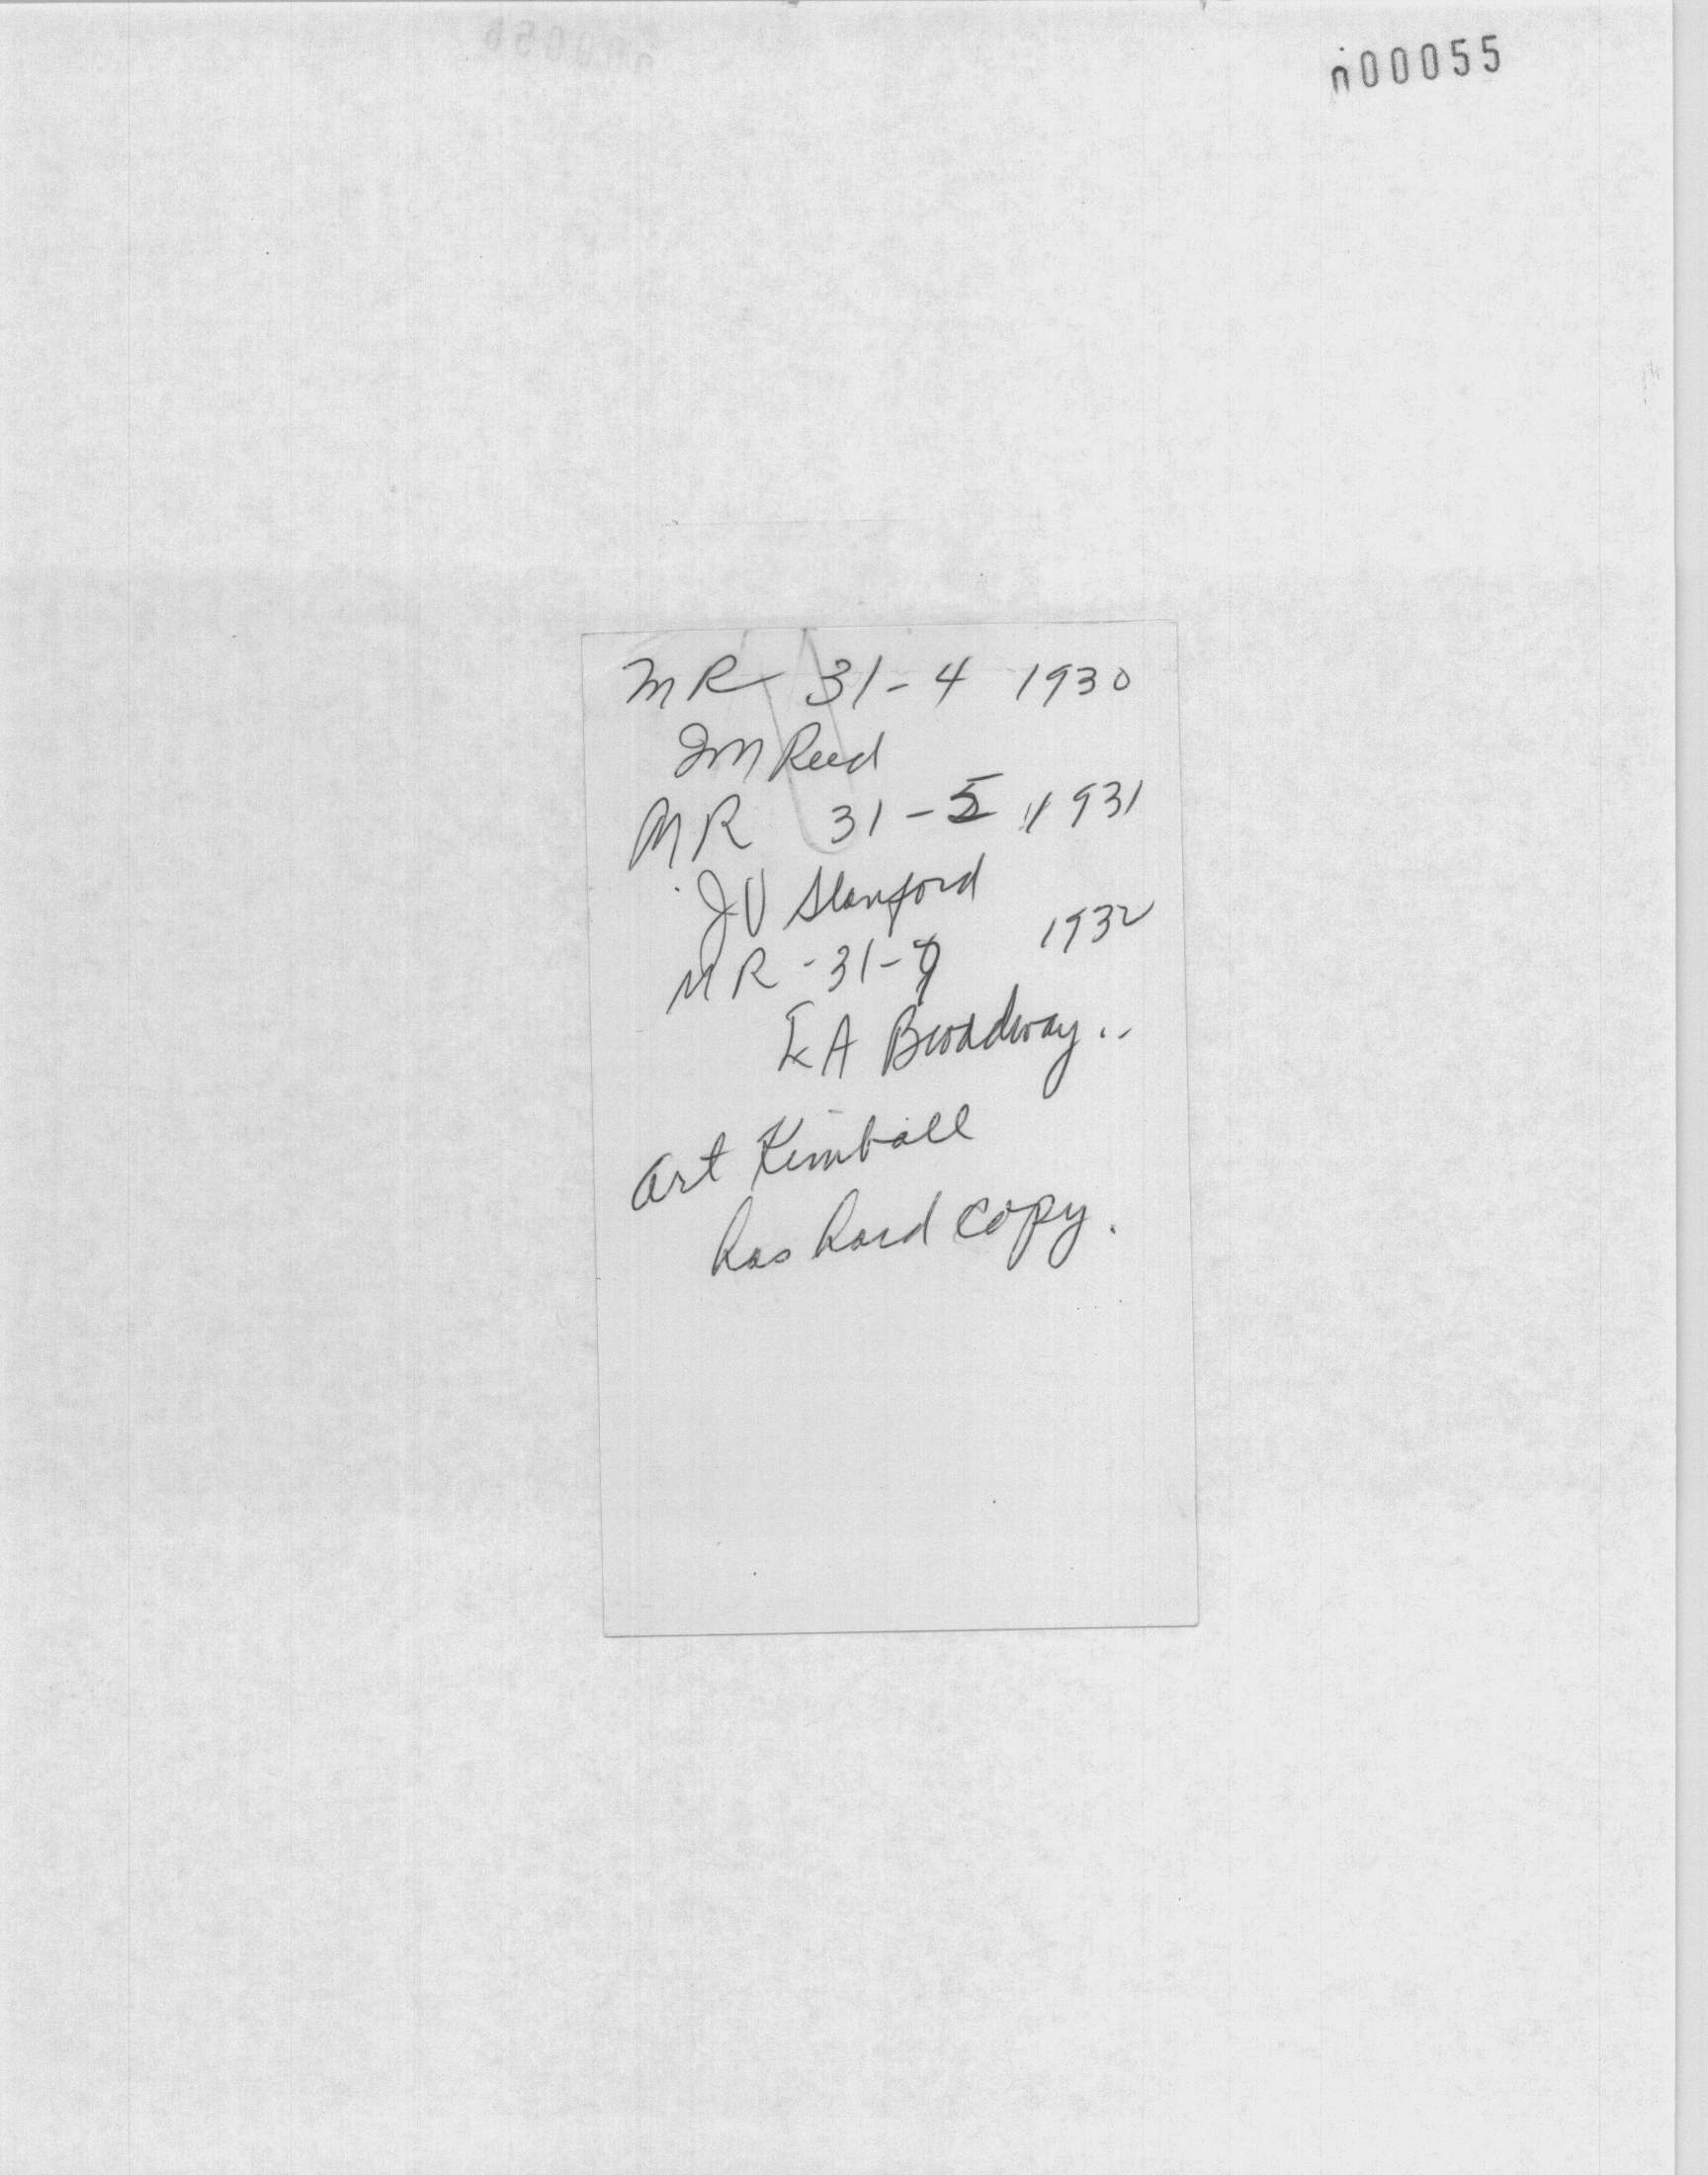 000055
MR 31-4 1930
JM Reed
MR 31-5 1931
JV Stanford
MR-31-9 1932
EA Broadway..
Art Kimball
has hard copy.